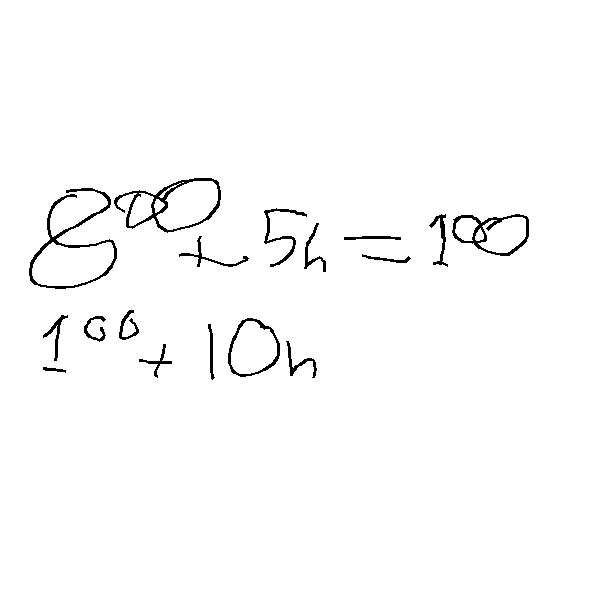 8⁰⁰ + 5h = 1⁰⁰
1⁰⁰ + 10h